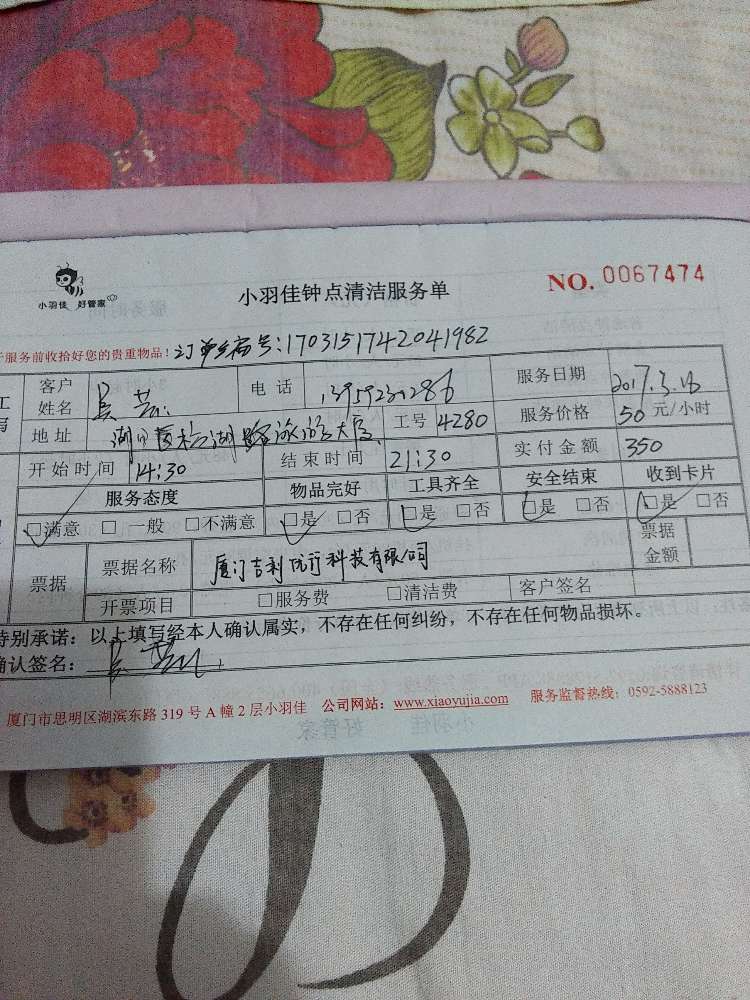 小羽佳 好管家
小羽佳钟点清洁服务单
NO. 0067474
服务前收拾好您的贵重物品! 订单编号:1703151742041982
客户姓名 吴 电话 服务日期 2017.3.16
地址 湖里区 湖路 大厦 工号 4280 服务价格 50元/小时
开始时间 14:30 结束时间 21:30 实付金额 350
服务态度 物品完好 工具齐全 安全结束 收到卡片
□满意 □一般 □不满意 □是 □否 □是 □否 □是 □否 □是 □否
票据 票据名称 厦门吉利优行科技有限公司 票据金额
开票项目 □服务费 □清洁费 客户签名
特别承诺:以上填写经本人确认属实,不存在任何纠纷,不存在任何物品损坏。
确认签名: 吴
厦门市思明区湖滨东路319号A幢2层小羽佳 公司网站:www.xiaoyujia.com 服务监督热线:0592-5888123